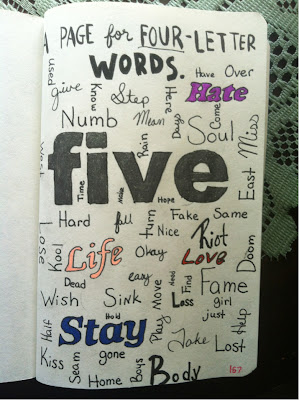 A PAGE for FOUR-LETTER
WORDS.
used
give
Know
Step
Here
Have Over
Hate
Numb
Mean
Days
Come
Rain
Soul
Miss
West
five
Time
Make
Hope
East
Hard
fall
Turn
Fake
Same
Lose
Kool
Life
Nice
Okay
Riot
Love
Doom
Dead
easy
Need
Find
Fame
Wish
Sink
Move
Loss
girl
just
Half
Stay
Hold
Play
Take
Help
Lost
Kiss
Seam
gone
Home
Boys
Body
167